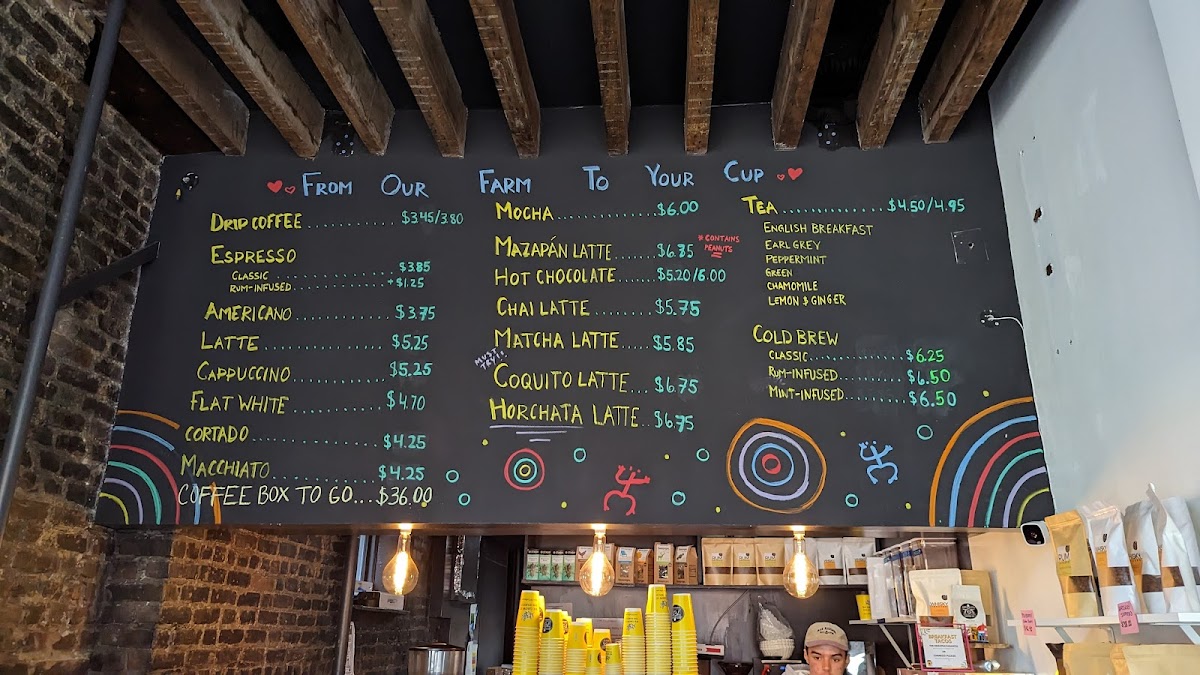 From Our Farm To Your Cup
DRIP COFFEE ........ $3.45/3.80
ESPRESSO
CLASSIC ........ $3.85
RUM-INFUSED ........ +$1.25
AMERICANO ........ $3.75
LATTE ........ $5.25
CAPPUCCINO ........ $5.25
FLAT WHITE ........ $4.70
CORTADO ........ $4.25
MACCHIATO ........ $4.25
COFFEE BOX TO GO... $36.00
MOCHA ........ $6.00
MAZAPÁN LATTE ...... $6.85
* CONTAINS PEANUTS
HOT CHOCOLATE ..... $5.20/6.00
CHAI LATTE ........ $5.75
MATCHA LATTE ..... $5.85
MUST TRY!
COQUITO LATTE ... $6.75
HORCHATA LATTE .. $6.75
TEA ........ $4.50/4.95
ENGLISH BREAKFAST
EARL GREY
PEPPERMINT
GREEN
CHAMOMILE
LEMON & GINGER
COLD BREW
CLASSIC ........ $6.25
RUM-INFUSED ........ $6.50
MINT-INFUSED ........ $6.50
BREAKFAST
TACOS